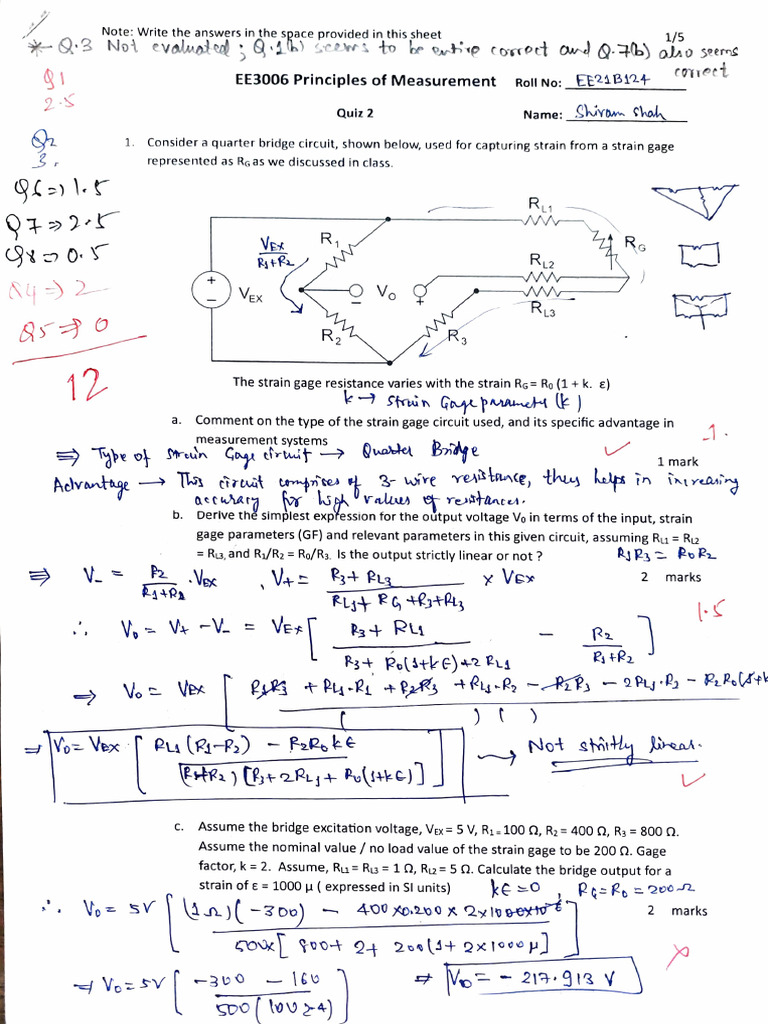 Note: Write the answers in the space provided in this sheet
1/5
*- Q.3 Not evaluated; Q.1(b) seems to be entire correct and Q.7(b) also seems correct
Q1
2.5
EE3006 Principles of Measurement
Roll No: EE21B124
Quiz 2
Name: Shivam Shah
Q2
3.
Q6=>1.5
Q7=>2.5
Q8=>0.5
Q4=>2
Q5=>0
12
1. Consider a quarter bridge circuit, shown below, used for capturing strain from a strain gage
represented as RG as we discussed in class.
RL1
R1
RG
VEX/R1+R2
RL2
VEX
+
−
VO
−
+
RL3
R2
R3
The strain gage resistance varies with the strain RG = R0 (1 + k. ε)
k → Strain Gage parameter (k)
a. Comment on the type of the strain gage circuit used, and its specific advantage in
measurement systems
-1.
1 mark
⇒ Type of Strain Gage circuit → Quarter Bridge
Advantage → This circuit comprises of 3-wire resistance, thus helps in increasing
accuracy for high values of resistances.
b. Derive the simplest expression for the output voltage V0 in terms of the input, strain
gage parameters (GF) and relevant parameters in this given circuit, assuming RL1 = RL2
= RL3, and R1/R2 = R0/R3. Is the output strictly linear or not ?
R1R3 = R0R2
2 marks
⇒ V− = R2/R1+R2 .VEX , V+ = R3 + RL3/RL1+ RG +R3+RL3 x VEX
1.5
∴ V0 = V+ −V− = VEX [ R3 + RL1/R3+ R0(1+kε)+2RL1 − R2/R1+R2 ]
⇒ V0 = VEX [ R1R3 + RL1.R1 + R2R3 + RL1.R2 − R2R3 − 2RL1.R2 − R2R0(1+k / ( ) ( )
⇒ V0 = VEX [ RL1(R1−R2) − R2R0kε / (R1+R2) [R3+2RL1+ R0(1+kε)] ] → Not strictly linear.
c. Assume the bridge excitation voltage, VEX = 5 V, R1 = 100 Ω, R2 = 400 Ω, R3 = 800 Ω.
Assume the nominal value / no load value of the strain gage to be 200 Ω. Gage
factor, k = 2. Assume, RL1 = RL3 = 1 Ω, RL2 = 5 Ω. Calculate the bridge output for a
strain of ε = 1000 μ ( expressed in SI units)
kε=0 , RG=R0=200Ω
2 marks
∴ V0 = 5V [ (1Ω)(−300) − 400×0.200 × 2×1000×10⁻⁶ / 500x[ 800+ 2+ 200(1+ 2×1000μ] ]
⇒ V0 = 5V [ −300 − 160 / 500(1002.4) ]
⇒ V0 = − 217.913 V